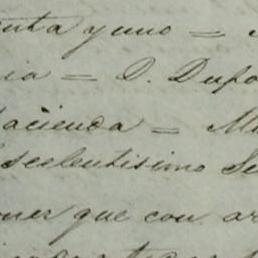 enta y uno =
ia = D. Dupo
acienda = M
scelentisimo Se
ner que con ar